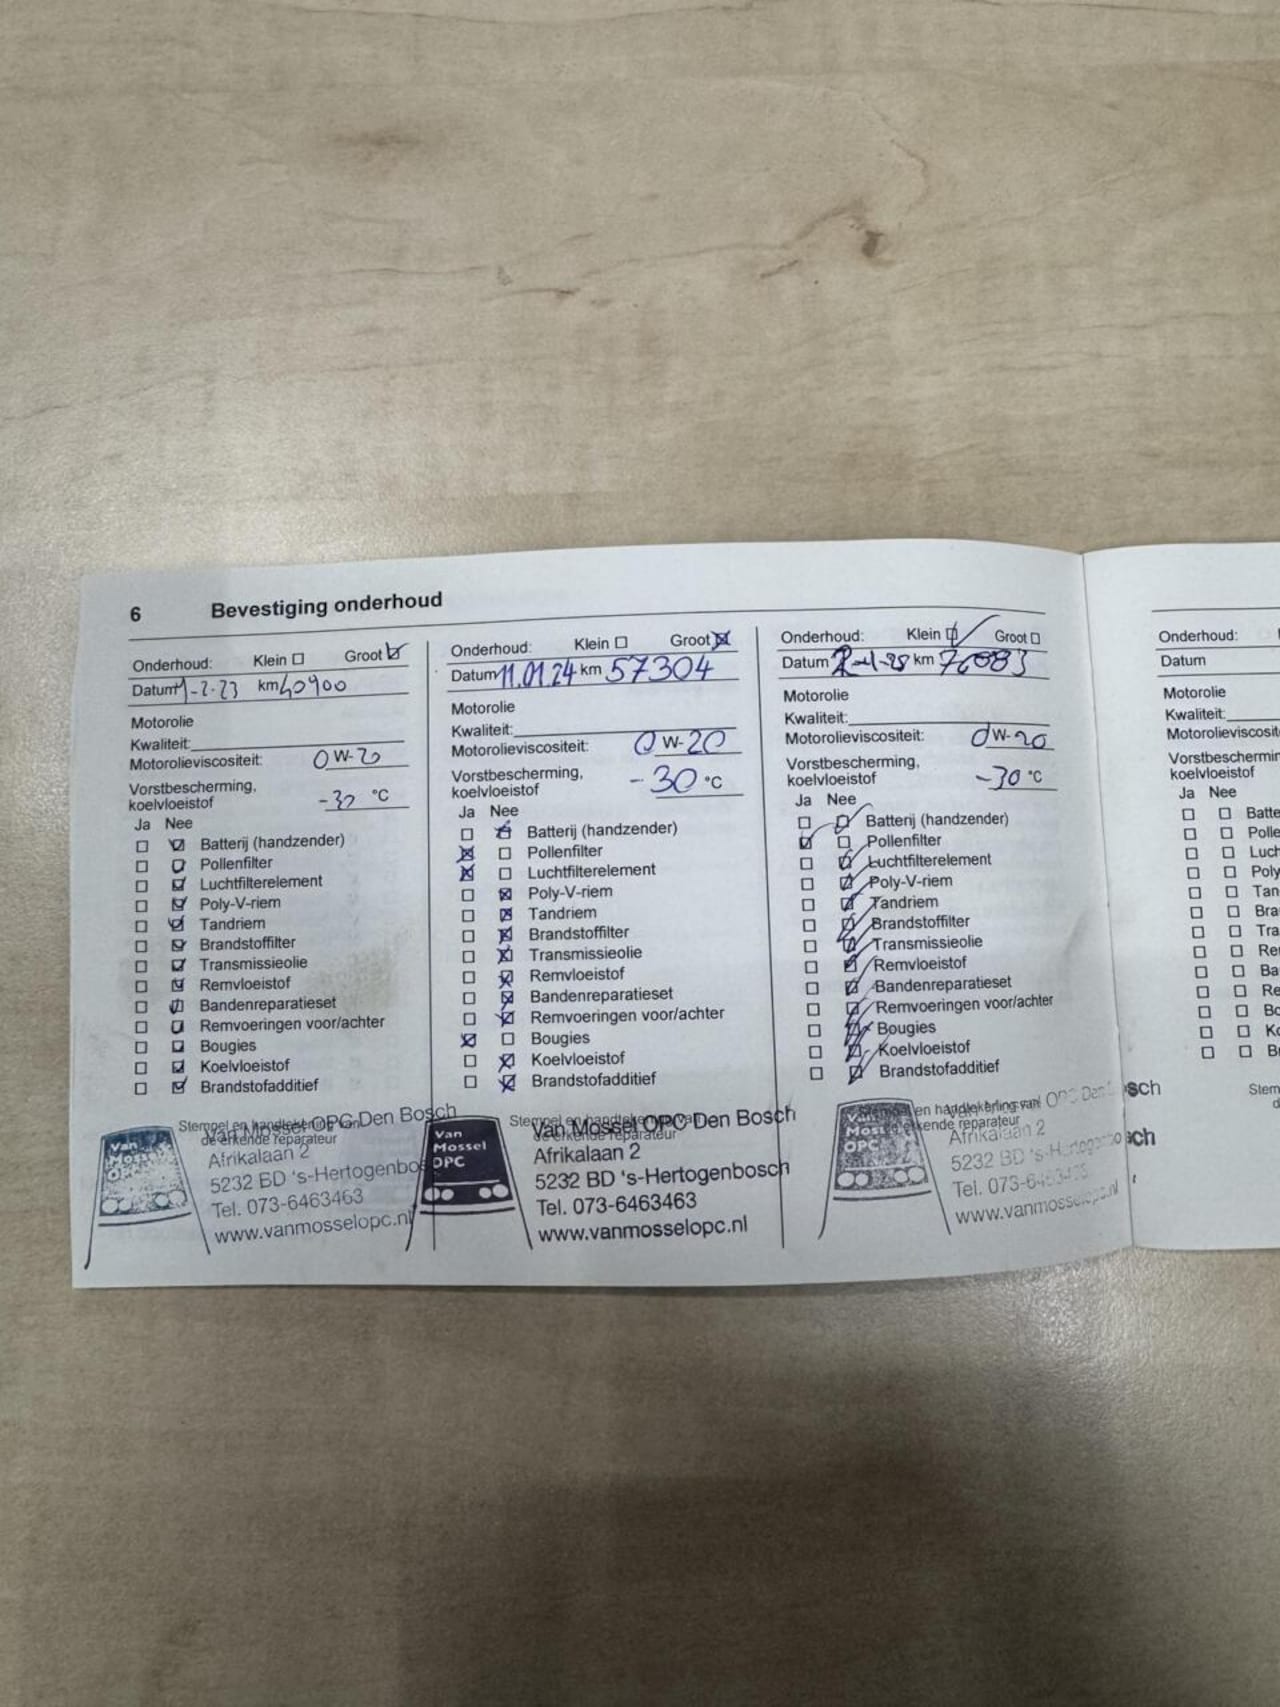 6 Bevestiging onderhoud
Onderhoud: Klein Groot
Datum 1-2-23 km 40900
Motorolie
Kwaliteit:
Motorolieviscositeit: 0W-20
Vorstbescherming,
koelvloeistof -30 °C
Ja Nee
Batterij (handzender)
Pollenfilter
Luchtfilterelement
Poly-V-riem
Tandriem
Brandstoffilter
Transmissieolie
Remvloeistof
Bandenreparatieset
Remvoeringen voor/achter
Bougies
Koelvloeistof
Brandstofadditief
Stempel en handtekening van
de erkende reparateur
Van Mossel OPC
Van Mossel OPC Den Bosch
Afrikalaan 2
5232 BD 's-Hertogenbos
Tel. 073-6463463
www.vanmosselopc.nl
Onderhoud: Klein Groot
Datum 11.01.24 km 57304
Motorolie
Kwaliteit:
Motorolieviscositeit: 0W-20
Vorstbescherming,
koelvloeistof -30 °C
Ja Nee
Batterij (handzender)
Pollenfilter
Luchtfilterelement
Poly-V-riem
Tandriem
Brandstoffilter
Transmissieolie
Remvloeistof
Bandenreparatieset
Remvoeringen voor/achter
Bougies
Koelvloeistof
Brandstofadditief
Stempel en handtekening van
de erkende reparateur
Van
Mossel
OPC
Van Mossel OPC Den Bosch
Afrikalaan 2
5232 BD 's-Hertogenbosch
Tel. 073-6463463
www.vanmosselopc.nl
Onderhoud: Klein Groot
Datum km 76683
Motorolie
Kwaliteit:
Motorolieviscositeit: 0W-20
Vorstbescherming,
koelvloeistof -30 °C
Ja Nee
Batterij (handzender)
Pollenfilter
Luchtfilterelement
Poly-V-riem
Tandriem
Brandstoffilter
Transmissieolie
Remvloeistof
Bandenreparatieset
Remvoeringen voor/achter
Bougies
Koelvloeistof
Brandstofadditief
Stempel en handtekening van
de erkende reparateur
Van
Mossel
OPC
Van Mossel OPC Den Bosch
Afrikalaan 2
5232 BD 's-Hertogenbosch
Tel.
www.vanmosselopc.nl
Onderhoud:
Datum
Motorolie
Kwaliteit:
Motorolieviscosit
Vorstbeschermin
koelvloeistof
Ja Nee
Batte
Polle
Luch
Poly
Tan
Bra
Tra
Re
Ba
Re
Bo
Ko
B
Stem
d